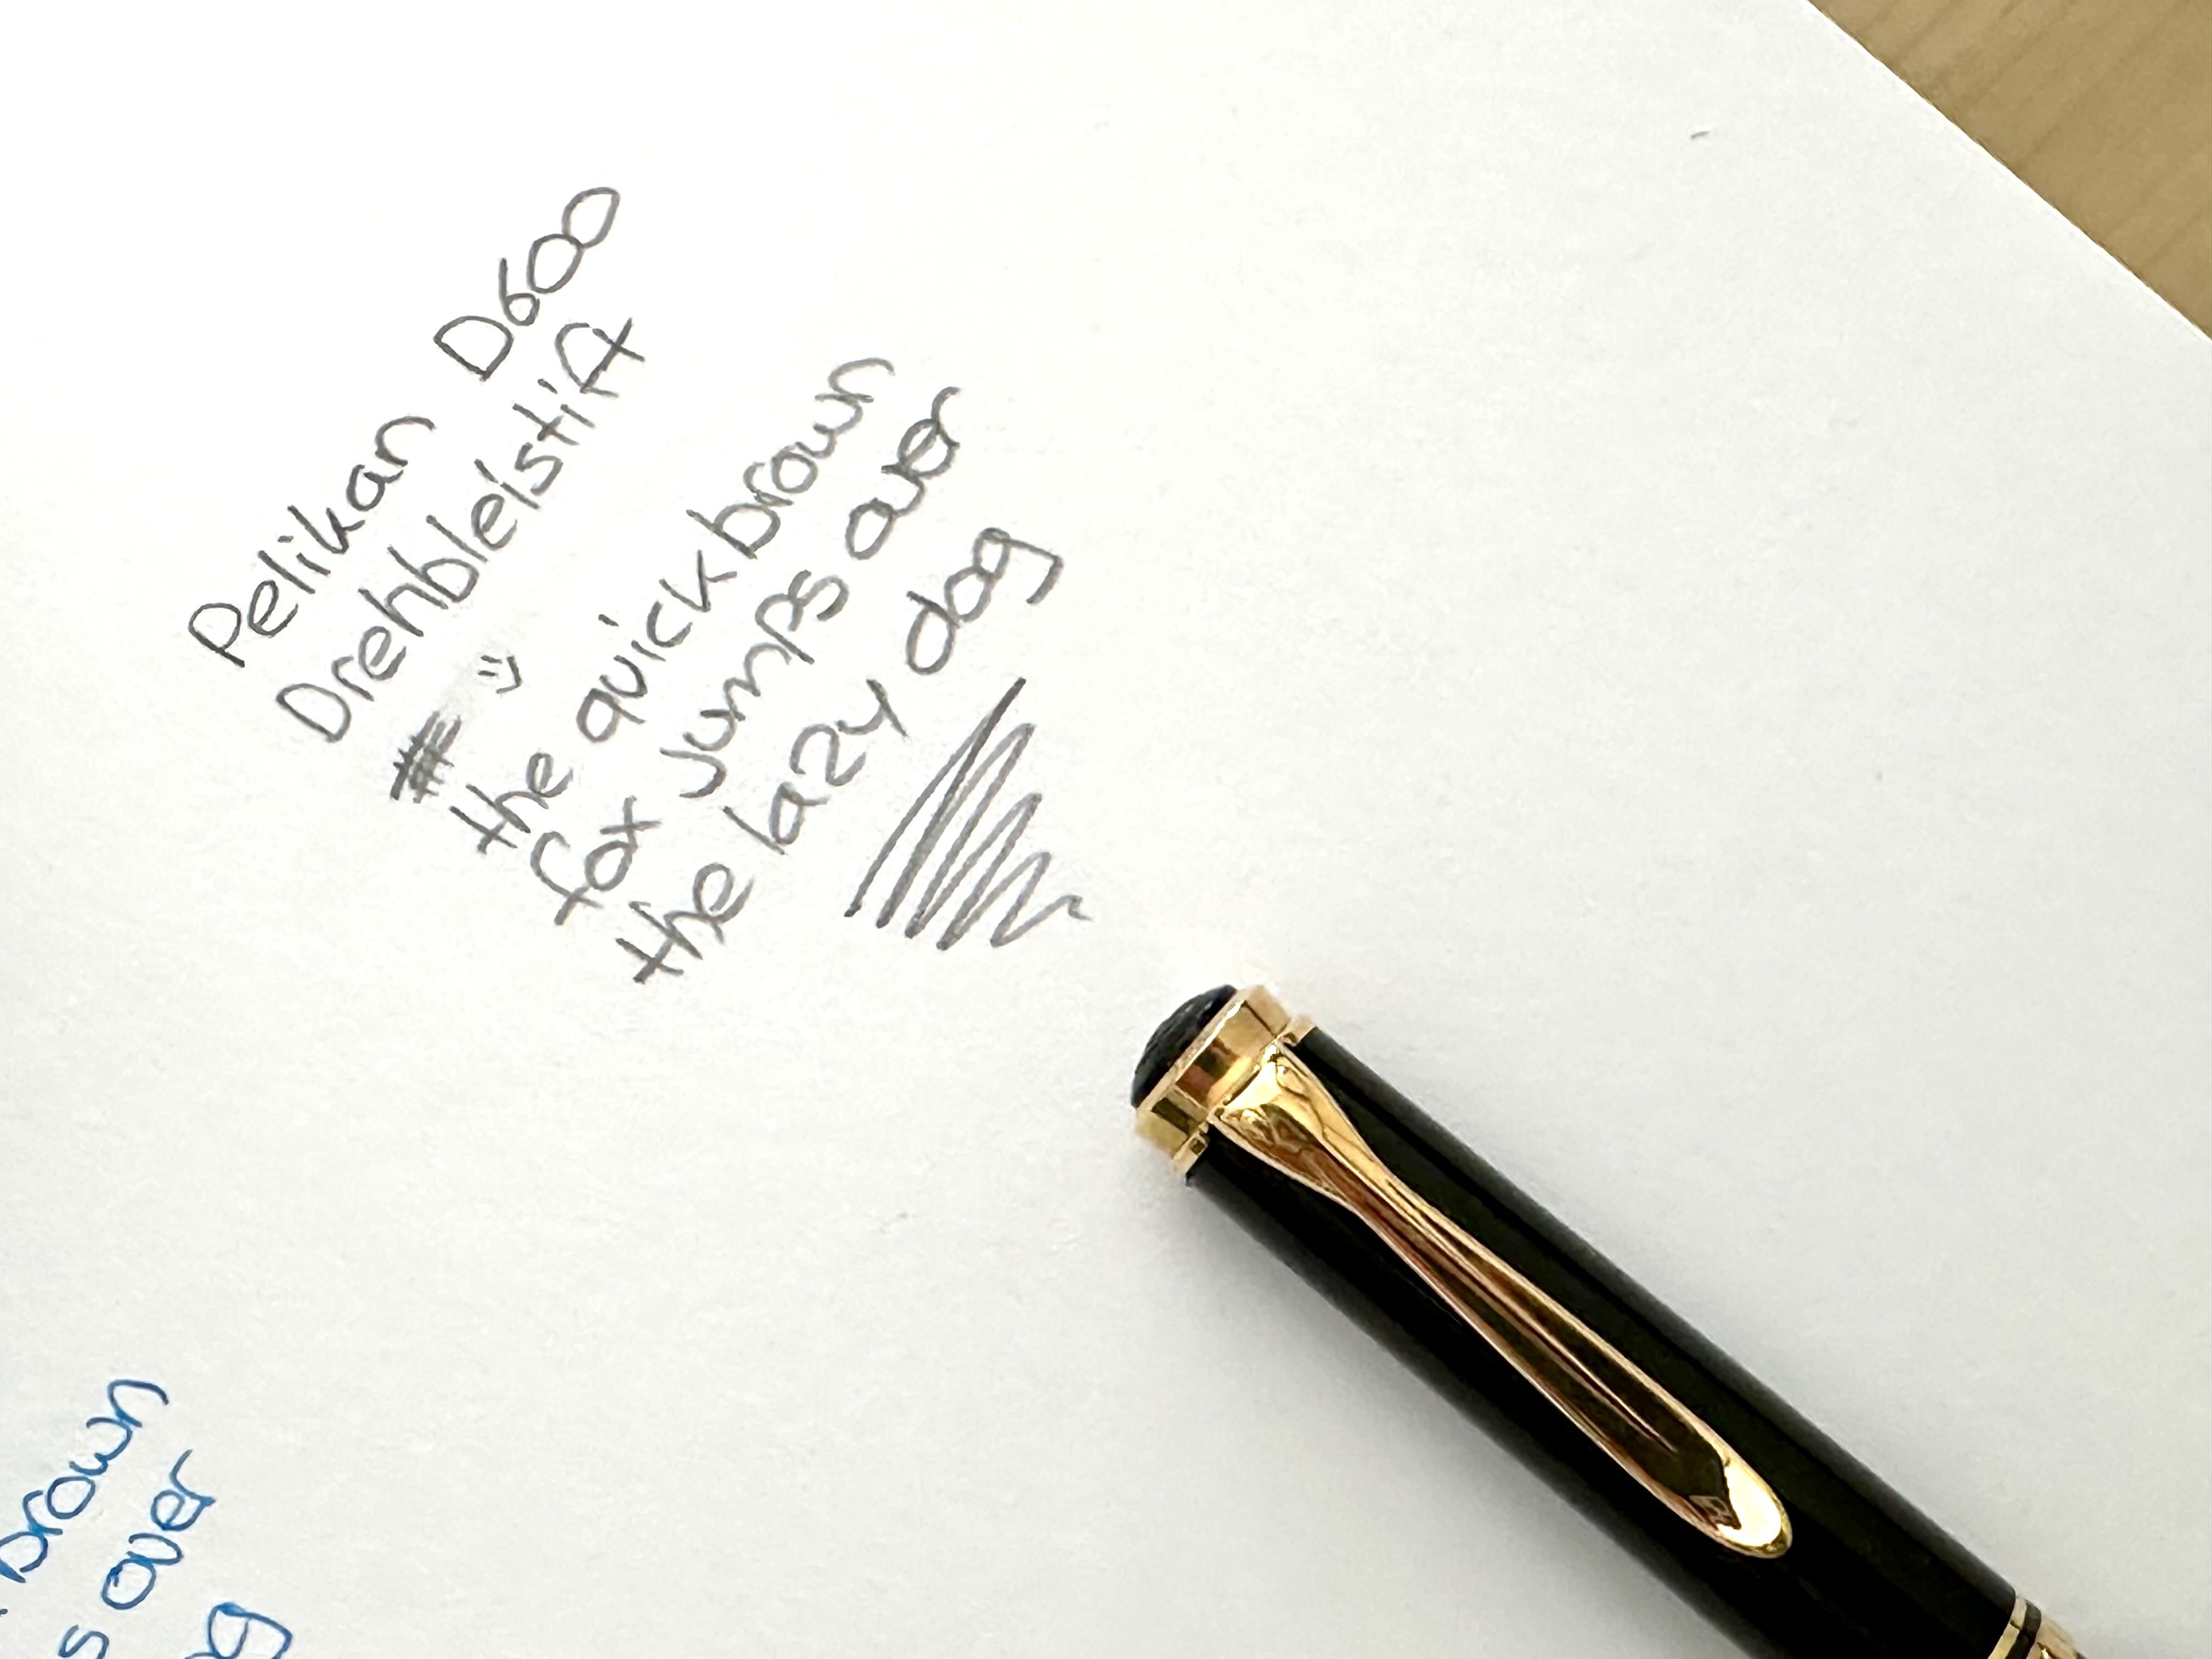 Pelikan D600
Drehbleistift
=)
the quick brown
fox jumps over
the lazy dog
brown
s over
og